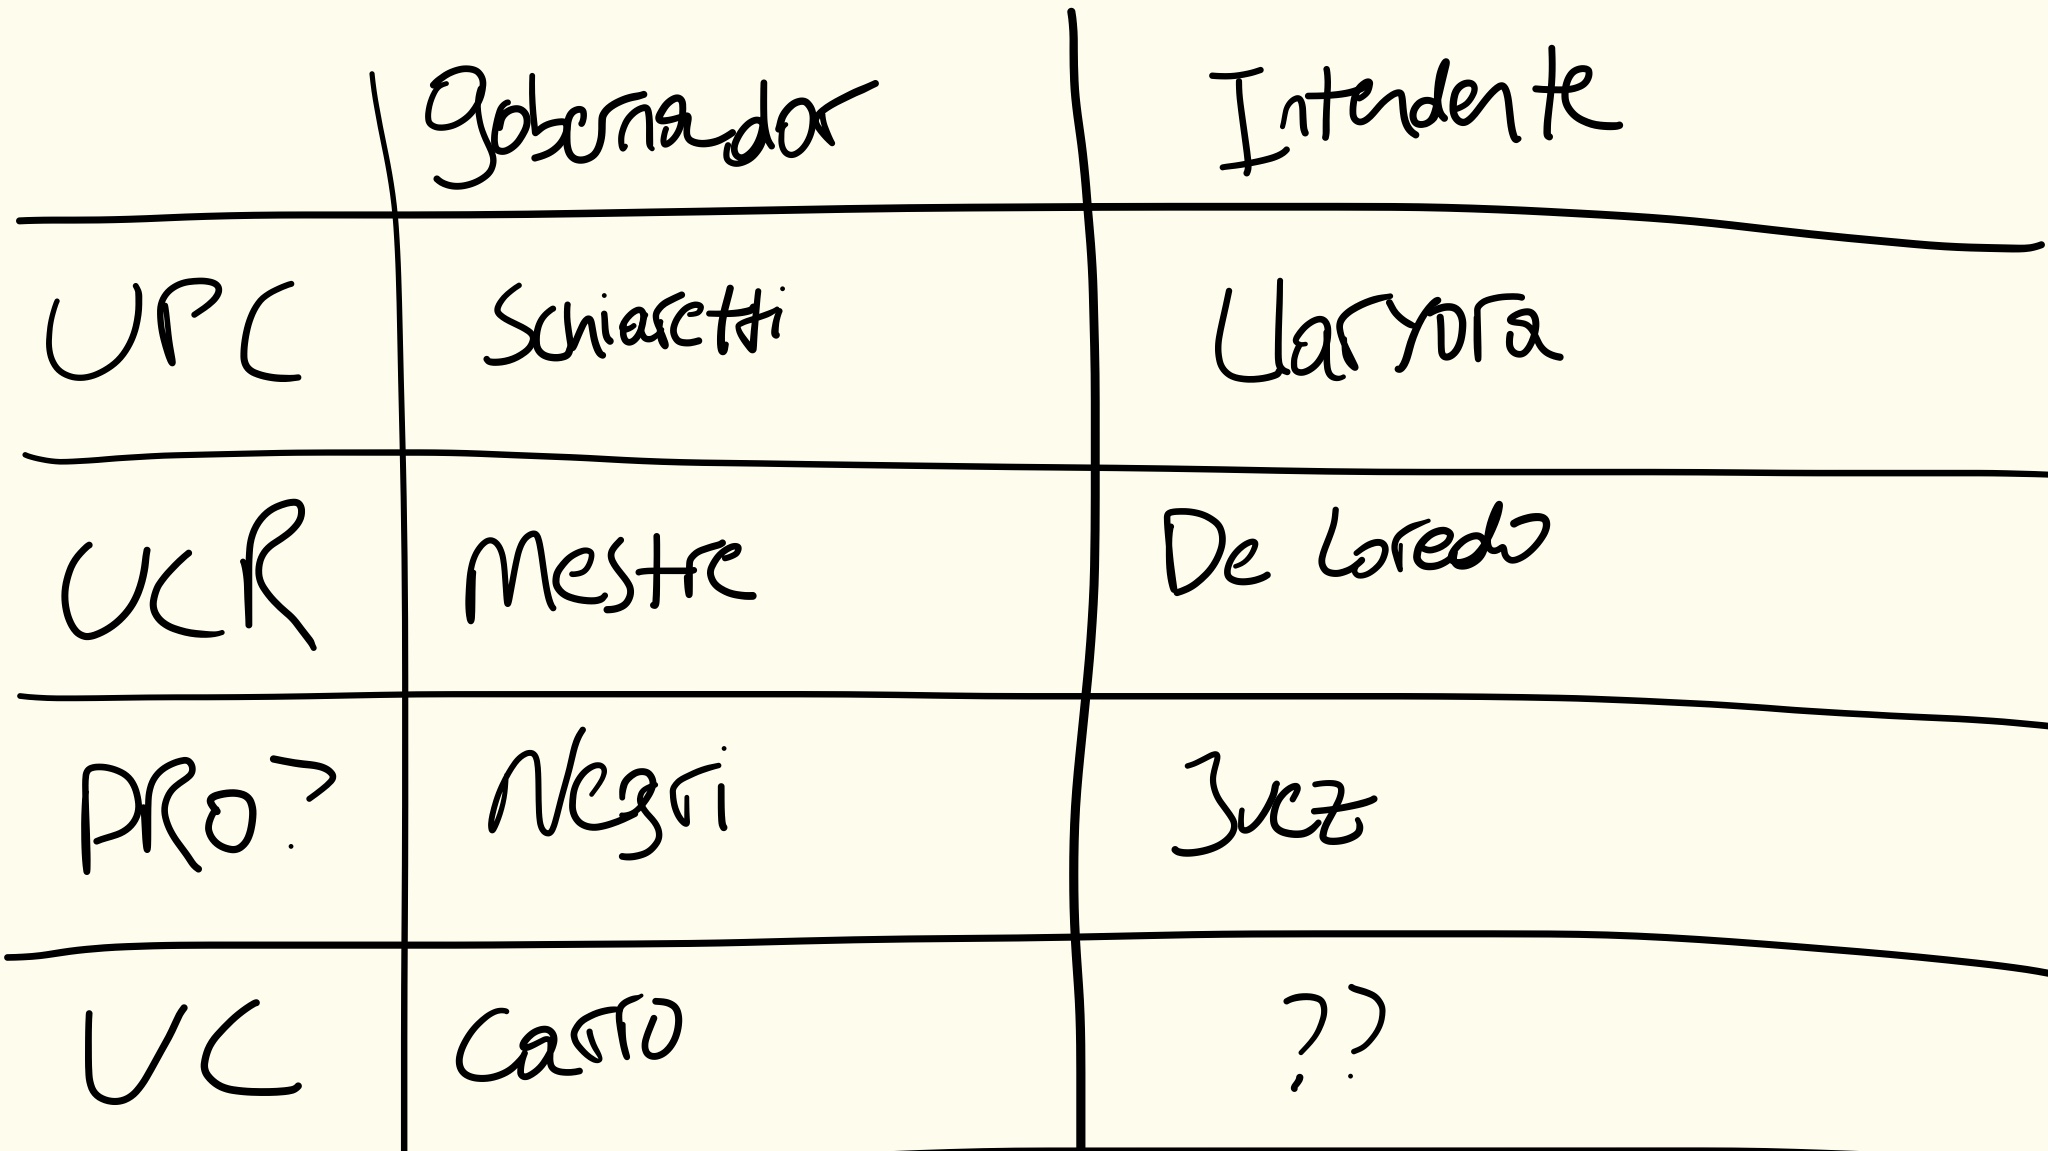 Gobernador Intendente
UPC Schiaretti Llaryora
UCR Mestre De Loredo
PRO? Negri Juez
UC Carro ??